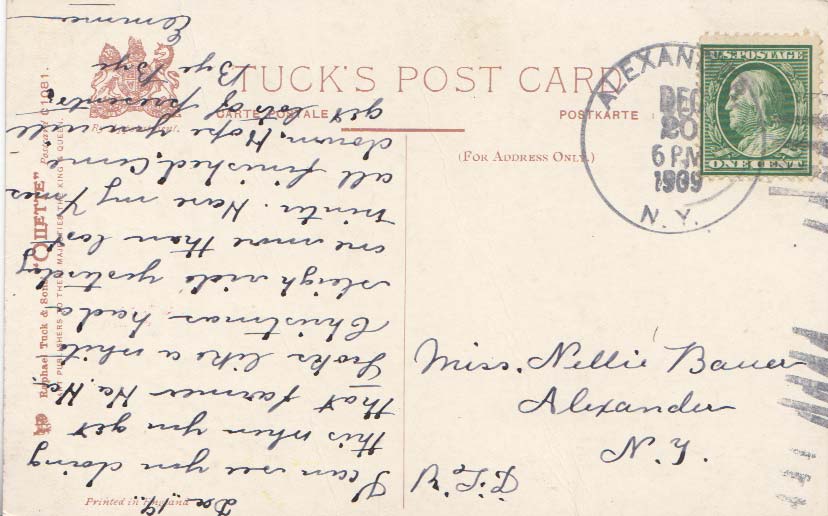 TUCK'S POST CARD
CARTE POSTALE
POSTKARTE
(FOR ADDRESS ONLY.)
Raphael Tuck & Sons' "OILETTE"
ART PUBLISHERS TO THEIR MAJESTIES THE KING & QUEEN.
Printed in England
U.S. POSTAGE
ONE CENT
DEC
20
6 P.M.
1909
N.Y.
Miss. Nellie Bauer
Alexander
N.Y.
Dec 19.
I can see you doing
this when you get
that farmer Ha. Ha.
Looks like a white
Christmas had a
sleigh ride yesterday
one more than last
winter. Have my Xmas
all finished. Come
down. Hope you will
get lots of presents.
Bye Bye
Emma